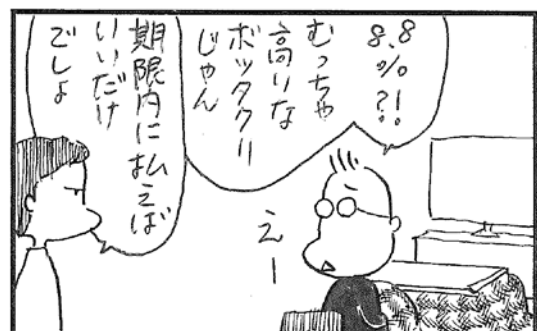 8.8%?!
むっちゃ
高いな
ボッタクリ
じゃん
えー
期限内に払えば
いいだけ
でしょ